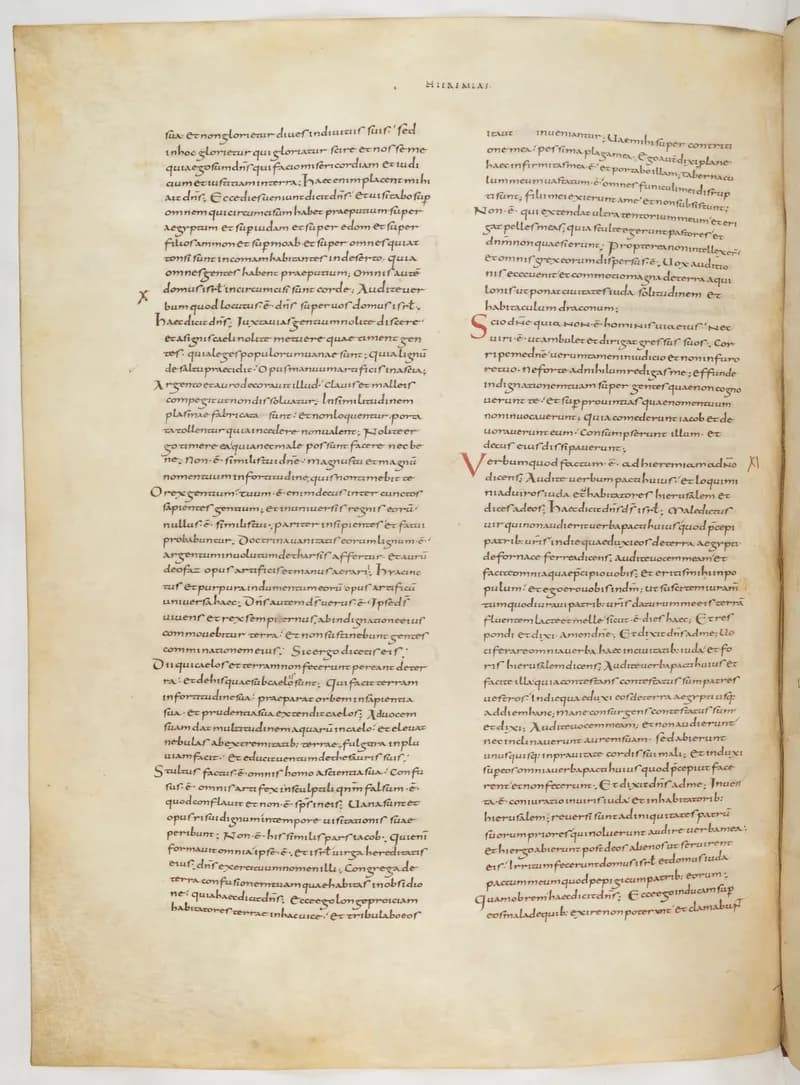 HIEREMIAS
sua· et non glorietur diues indiuitiis suis· sed
inhoc glorietur qui gloriatur scire et nosse me
quia ego sum dñs qui facio misericordiam et iudi
cium et iustitiam interra; Haec enim placent mihi
ait dñs; Ecce dies ueniunt dicit dñs· et uisitabo sup
omnem qui circumcisum habet praeputium super
aegyptum et sup iudam et super edom et super
filios ammon et sup moab et super omnes qui at
tonsi sunt incomam habitantes indeserto· quia
omnes gentes habent praeputium; Omnis autē
domus isrł incircumcisi sunt corde; Audite uer
X
bum quod locutus ē dñs super uos domus isrł·
Haec dicit dñs; Iuxta uias gentium nolite discere·
et a signis caeli nolite metuere quae timent gen
tes· quia leges populorum uanae sunt; Quia lignū
de saltu praecidit· opus manuum artificis inascia;
Argento et auro decorauit illud· clauis et malleis
compegit ut non dissoluatur; Insimilitudinem
palmae fabricata sunt· et non loquentur· porta
ta tollentur quia incedere non ualent; Nolite er
go timere ea quia nec male possunt facere nec be
ne; Non ē similis tui dñe· magnus tu et magnū
nomen tuum infortitudine; quis non timebit te
O rex gentium; tuum ē enim decus inter cunctos
sapientes gentium; et inuniuersis regnis eorū
nullus ē similis tui; pariter insipientes et fatui
probabuntur; Doctrina uanitatis eorum lignum ē·
argentum inuolutum de tharsis affertur· et aurū
de ofaz opus artificis et manus aerarii; Hyacinc
tus et purpura indumentum eorū opus artificū
uniuersa haec; Dñs autem ds̄ uerus ē· Ipse ds̄
uiuens et rex sempiternus; ab indignatione eius
commouebitur terra· et non sustinebunt gentes
comminationem eius; Sic ergo dicetis eis;
Dii qui caelos et terram non fecerunt pereant deter
ra· et de his quae sub caelo sunt; Qui facit terram
infortitudine sua· praeparat orbem insapientia
sua· et prudentia sua extendit caelos; Ad uocem
suam dat multitudinem aquarū incaelo· et eleuat
nebulas ab extremitatib; terrae; fulgura inplu
uiam facit· et educit uentum de thesauris suis;
Stultus factus ē omnis homo ascientia sua· Confu
sus ē omnis artifex insculptili qnm̄ falsum ē·
quod conflauit et non ē sps̄ ineis; Uana sunt et
opus risu dignum intempore uisitationis suae
peribunt; Non ē his similis pars iacob· Qui enī
formauit omnia ipse ē· et isrł uirga hereditatis
eius; dñs exercituum nomen illi; Congrega de
terra confusionem tuam quae habitas inobsidio
ne· quia haec dicit dñs; Ecce ego longe proiciam
habitatores terrae inhac uice· et tribulabo eos
ita ut inueniantur; Uae mihi super contriti
one mea· pessima plaga mea; Ego aut̄ dixi plane
haec infirmitas mea ē· et portabo illam; tabernacu
lum meum uastatum ē· omnes funiculi mei dirup
ti sunt; filii mei exierunt a me· et non subsistunt;
Non ē qui extendat ultra tentorium meum et eri
gat pelles meas; quia stulte egerunt pastores et
dnm̄ non quaesierunt; Propterea non intellexer̄·
et omnis grex eorum dispersus ē; Uox auditio
nis ecce uenit et commotio magna de terra aqui
lonis ut ponat ciuitates iuda solitudinem et
habitaculum draconum;
Scio dñe quia non ē hominis uia eius· nec
uiri ē ut ambulet et dirigat gressus suos; Cor
ripe me dñe· uerumtamen iniudicio et non infuro
re tuo· ne forte ad nihilum redigas me; Effunde
indignationem tuam super gentes quae non cogno
uerunt te· et sup prouintias quae nomen tuum
non inuocauerunt; quia comederunt iacob et de
uorauerunt eum· Consumpserunt illum· et
decus eius dissipauerunt;
Verbum quod factum ē ad hieremiam a dño
XI
dicens; Audite uerba pacti huius· et loquimi
ni ad uiros iuda et habitatores hierusalem et
dices ad eos; Haec dicit dñs ds̄ isrł; Maledictus
uir qui non audierit uerba pacti huius quod p̄cepi
patrib: ur̄is indie qua eduxi eos de terra aegypti
de fornace ferrea dicens; Audite uocem meam et
facite omnia quae p̄cipio uobis; et eritis mihi inpo
pulum· et ego ero uobis indm̄; ut suscitem iuram̄
tum quod iuraui patrib: ur̄is daturum me eis terrā
fluentem lacte et melle sicut ē dies haec; Et res
pondi et dixi· Amen dñe; Et dixit dñs ad me; Uo
ciferare omnia uerba haec inciuitatib: iuda· et fo
ris hierusalem dicens; Audite uerba pacti huius et
facite illa· quia contestans contestatus sum patres
uestros· Indie qua eduxi eos de terra aegypti usq:
ad diem hanc; mane consurgens contestatus sum
et dixi; Audite uocem meam; et non audierunt·
nec inclinauerunt aurem suam· sed abierunt
unusquisq: inprauitate cordis sui mali; Et induxi
super eos omnia uerba pacti huius quod p̄cepi ut face
rent et non fecerunt; Et dixit dñs ad me; Inuen
ta ē coniuratio inuiris iuda et inhabitatorib:
hierusalem; reuersi sunt ad iniquitates patrū
suorum priores qui noluerunt audire uerba mea;
et hi ergo abierunt post deos alienos ut seruirent
eis· Irritum fecerunt domus isrł et domus iuda
pactum meum quod pepigi cum patrib: eorum;
Quamobrem haec dicit dñs; Ecce ego inducam sup
eos mala de quib: exire non poterunt· et clamabunt